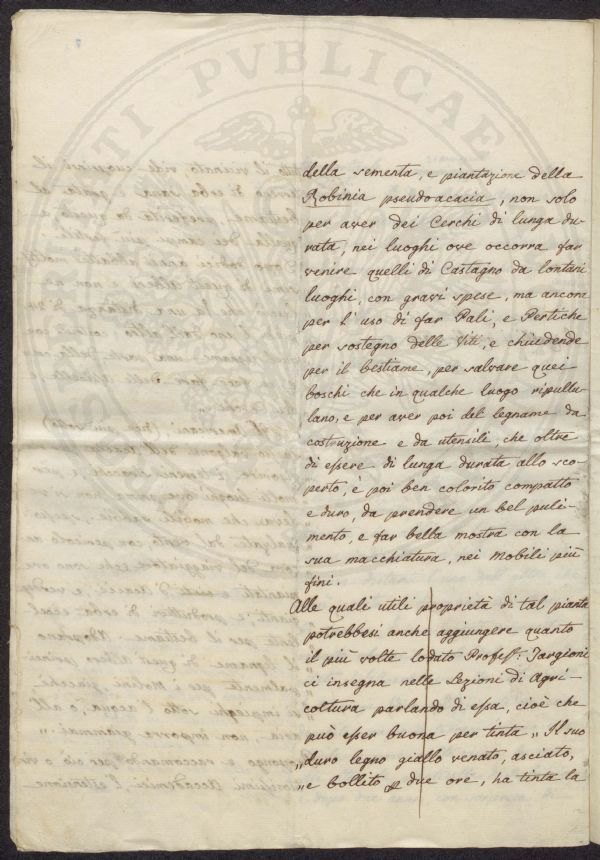 della sementa, e piantazione della
Robinia pseudoacacia, non solo
per aver dei Cerchi di lunga du-
rata, nei luoghi ove occorra far
venire quelli di Castagno da lontani
luoghi, con gravi spese, ma ancora
per l'uso di far Pali, e Pertiche
per sostegno delle Viti, e chiudende
per il bestiame, per salvare quei
boschi che in qualche luogo ripullu-
lano, e per aver poi del legname da
costruzione e da utensile, che oltre
di essere di lunga durata allo sco-
perto, è poi ben colorito compatto
e duro, da prendere un bel puli-
mento, e far bella mostra con la
sua macchiatura, nei Mobili più
fini.
Alle quali utili proprietà di tal pianta
potrebbesi anche aggiungere quanto
il più volte lodato Profess: Targioni
ci insegna nelle Lezioni di Agri-
coltura parlando di essa, cioè che
può esser buona per tinta „ Il suo
„ duro legno giallo venato, asciato,
„ e bollito due ore, ha tinta la